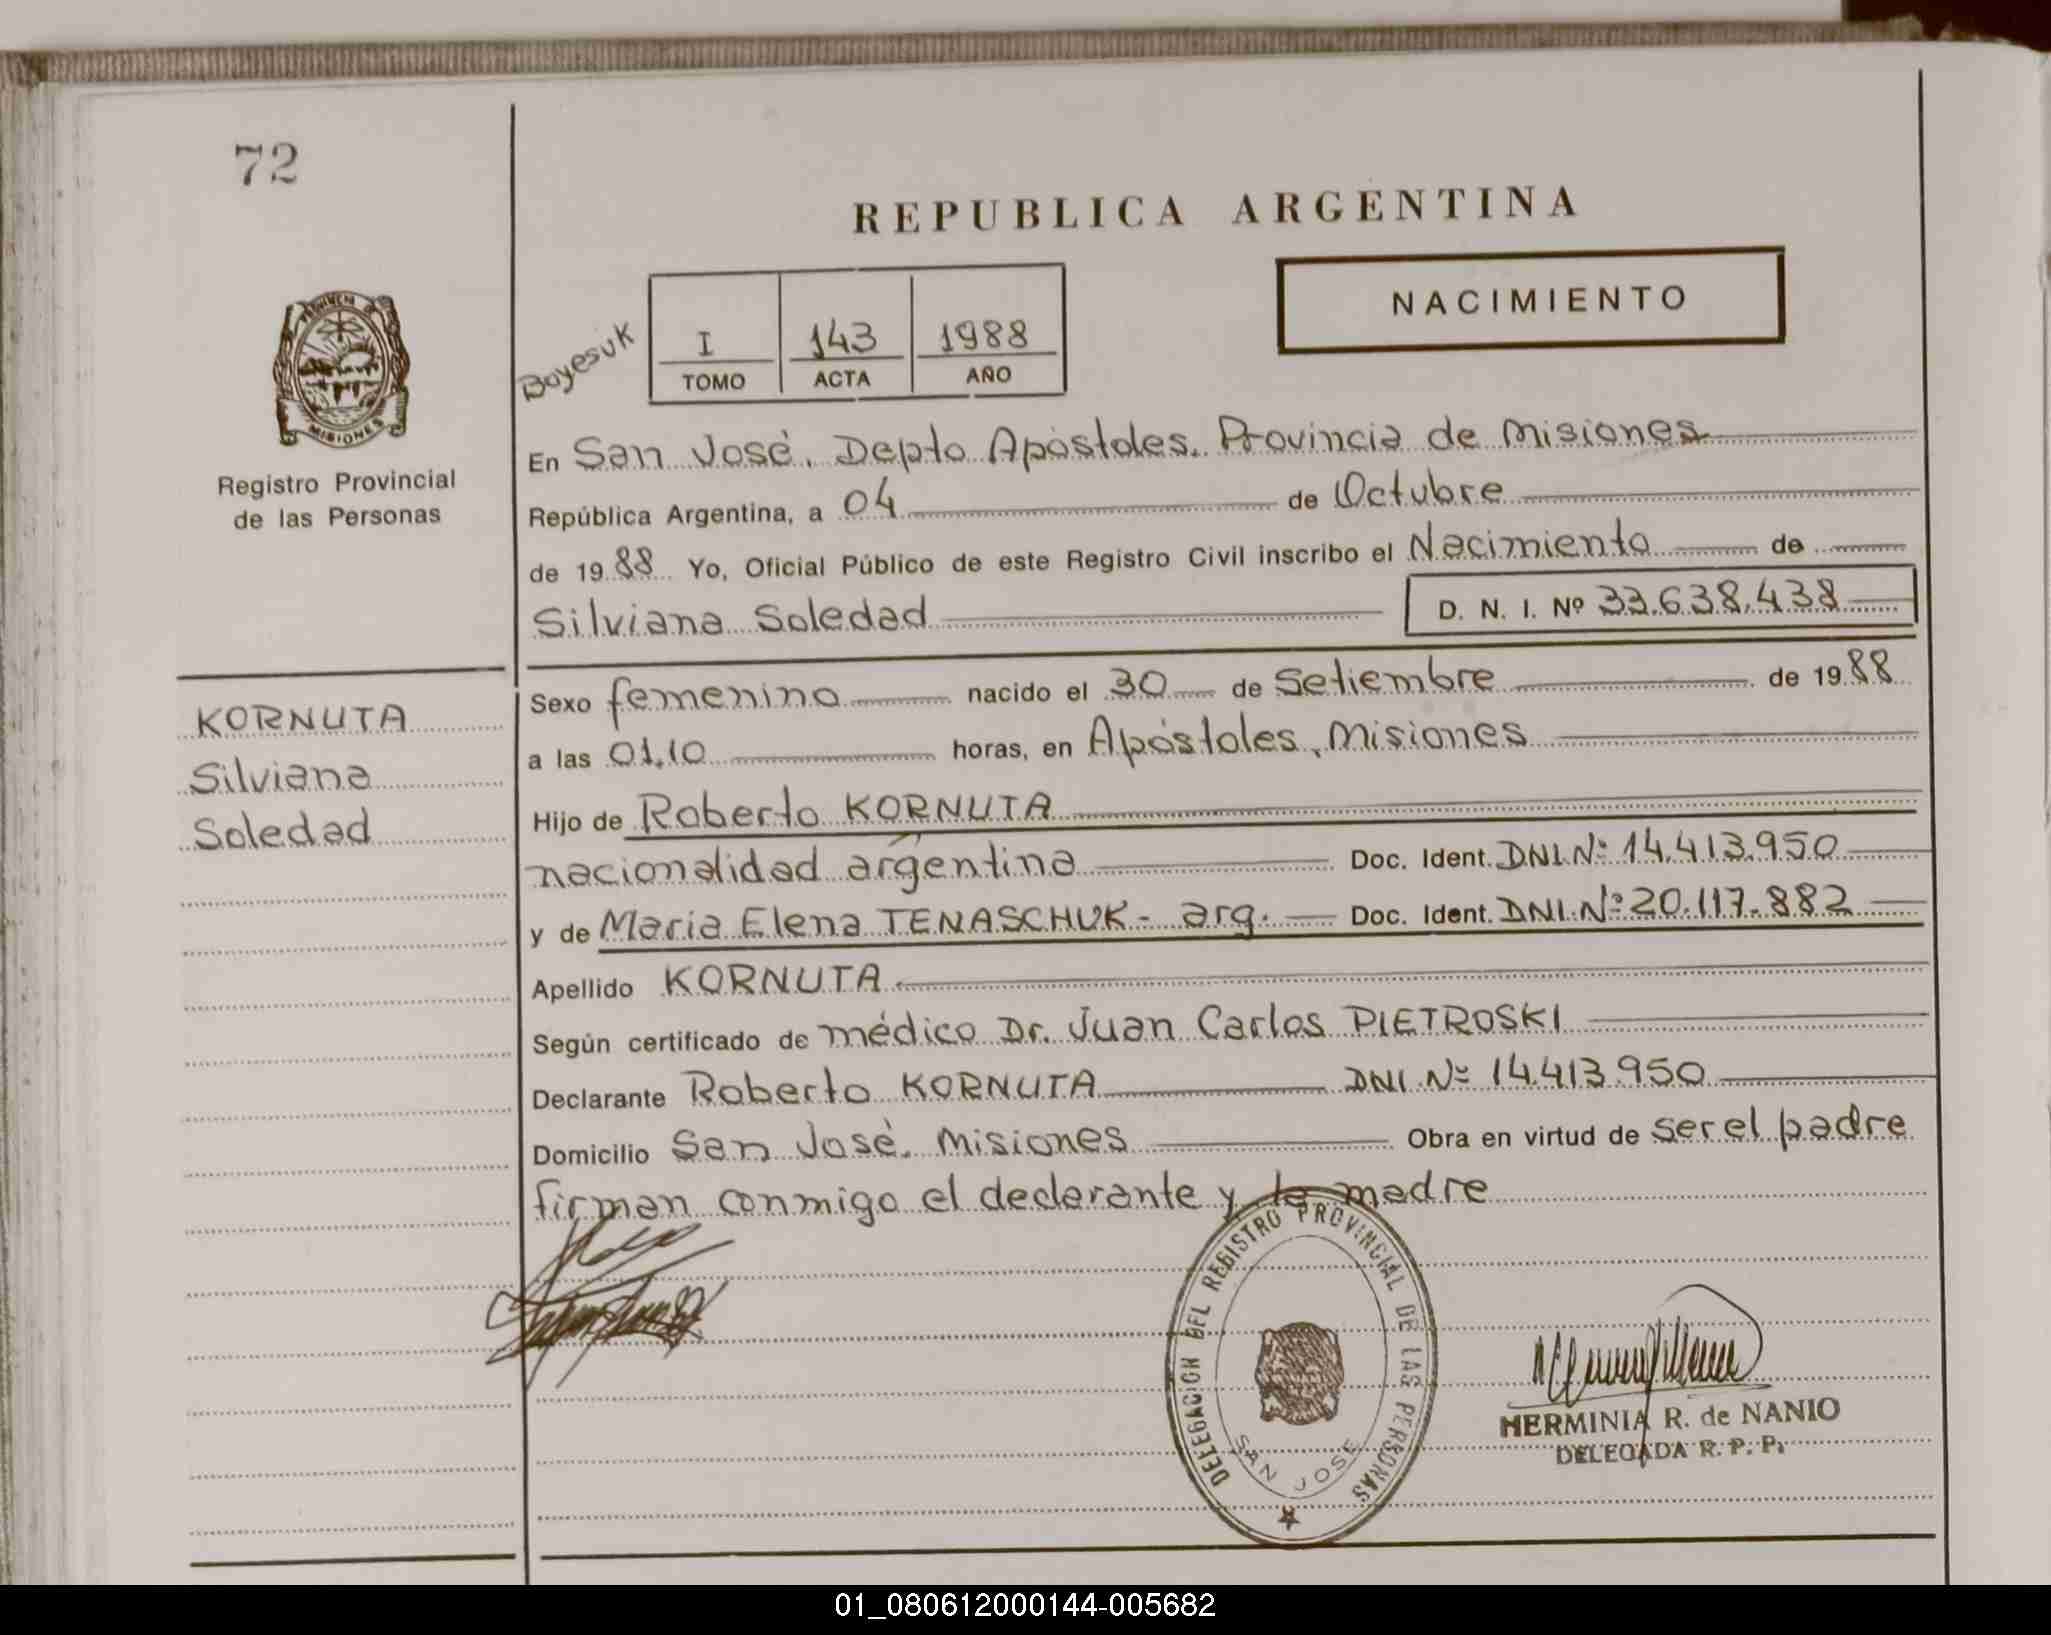 72
REPUBLICA ARGENTINA
NACIMIENTO
Boyesuk
I 143 1988
TOMO ACTA AÑO
PROVINCIA
MISIONES
Registro Provincial
de las Personas
En San José, Depto Apóstoles. Provincia de Misiones
República Argentina, a 04 de Octubre
de 1988 Yo, Oficial Público de este Registro Civil inscribo el Nacimiento de
Silviana Soledad D. N. I. Nº 33.638.438
KORNUTA
Silviana
Soledad
Sexo femenino nacido el 30 de Setiembre de 1988
a las 01,10 horas, en Apóstoles, Misiones
Hijo de Roberto KORNUTA
nacionalidad argentina Doc. Ident. DNI.Nº 14.413.950
y de Maria Elena TENASCHUK - arg. Doc. Ident. DNI.Nº 20.117.882
Apellido KORNUTA
Según certificado de médico Dr. Juan Carlos PIETROSKI
Declarante Roberto KORNUTA DNI.Nº 14.413.950
Domicilio San José. Misiones Obra en virtud de ser el padre
firman conmigo el declarante y la madre
DELEGACION DEL REGISTRO PROVINCIAL DE LAS PERSONAS
SAN JOSE
HERMINIA R. de NANIO
DELEGADA R. P. P.
01_080612000144-005682